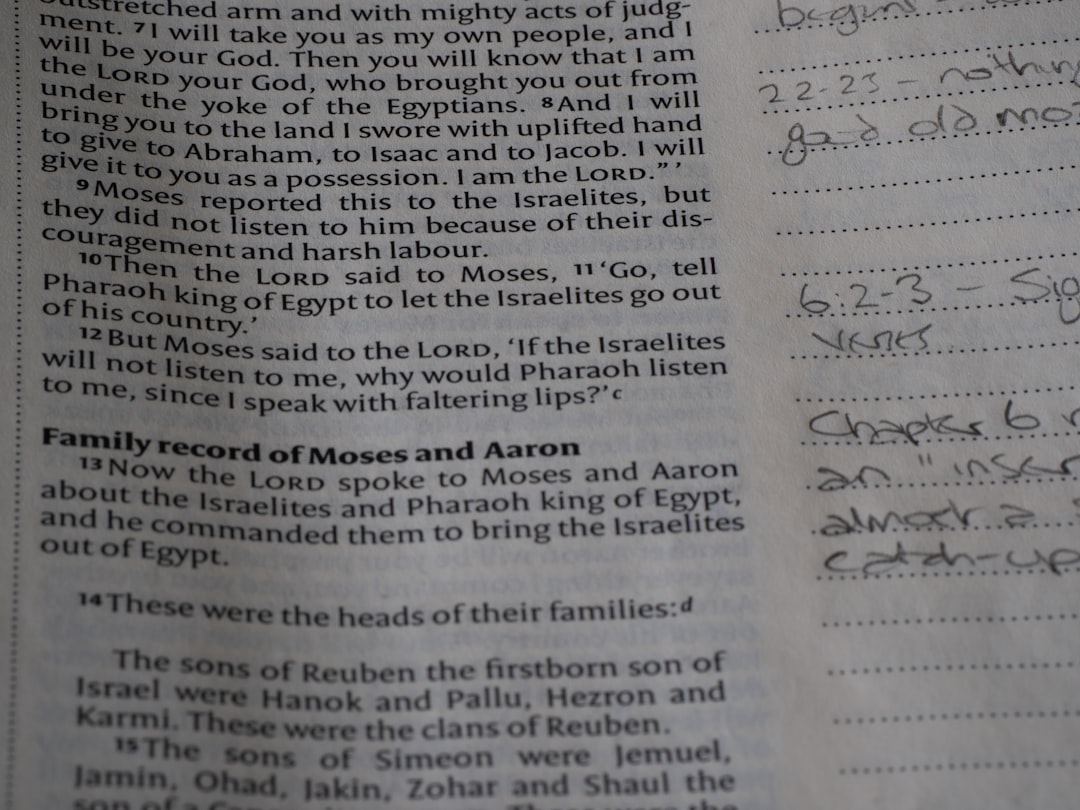 outstretched arm and with mighty acts of judg-
ment. 7 I will take you as my own people, and I
will be your God. Then you will know that I am
the LORD your God, who brought you out from
under the yoke of the Egyptians. 8 And I will
bring you to the land I swore with uplifted hand
to give to Abraham, to Isaac and to Jacob. I will
give it to you as a possession. I am the LORD.” ’
9 Moses reported this to the Israelites, but
they did not listen to him because of their dis-
couragement and harsh labour.
10 Then the LORD said to Moses, 11 ‘Go, tell
Pharaoh king of Egypt to let the Israelites go out
of his country.’
12 But Moses said to the LORD, ‘If the Israelites
will not listen to me, why would Pharaoh listen
to me, since I speak with faltering lips?’ c
Family record of Moses and Aaron
13 Now the LORD spoke to Moses and Aaron
about the Israelites and Pharaoh king of Egypt,
and he commanded them to bring the Israelites
out of Egypt.
14 These were the heads of their families: d
The sons of Reuben the firstborn son of
Israel were Hanok and Pallu, Hezron and
Karmi. These were the clans of Reuben.
15 The sons of Simeon were Jemuel,
Jamin, Ohad, Jakin, Zohar and Shaul the
son of a
begins
22-23 - nothing
good old
6:2-3 -
verses
Chapter 6
an
almost a
catch-up